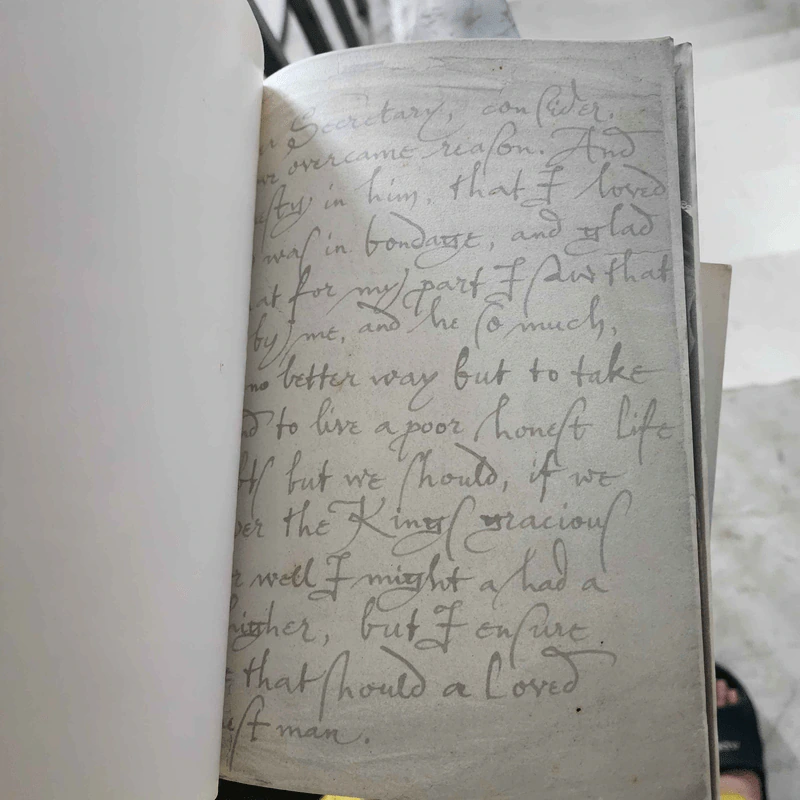 Secretary, conſider,
overcame reaſon. And
in him, that I loved
waſ in bondage, and glad
for my part I ſaw that
by me, and he ſo much,
no better way but to take
to live a poor honeſt life
but we ſhould, if we
the Kingſ graciouſ
well I might a had a
higher, but I enſure
that ſhould a loved
man.